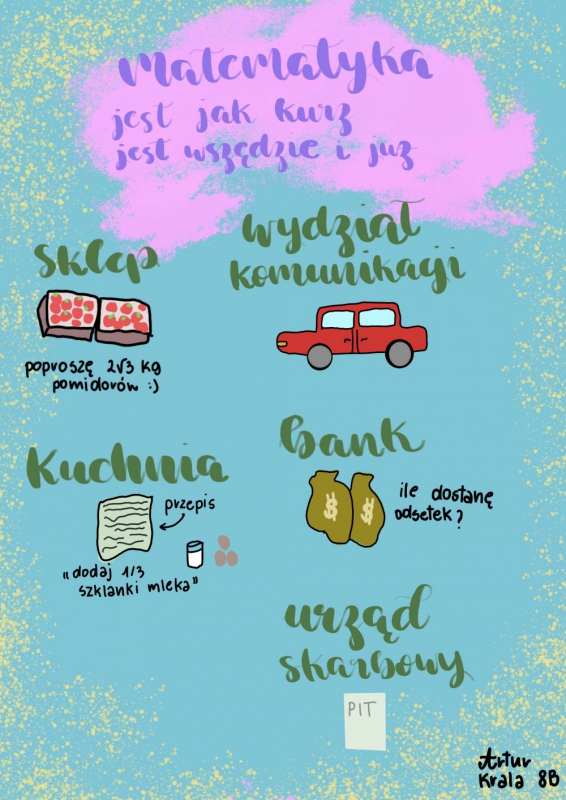 Matematyka
jest jak kurz
jest wszędzie i już
Sklep
poproszę 2√3 kg
pomidorów :)
Wydział
komunikacji
Kuchnia
przepis
"dodaj 1/3
szklanki mleka"
Bank
$ $
ile dostanę
odsetek?
urząd
skarbowy
PIT
Artur
Krala 8B